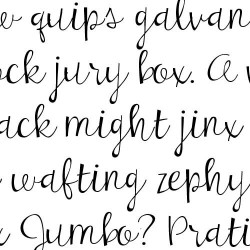 w quips galvan
ock jury box. A w
ack might jinx
wafting zephy
x Jumbo? Prati